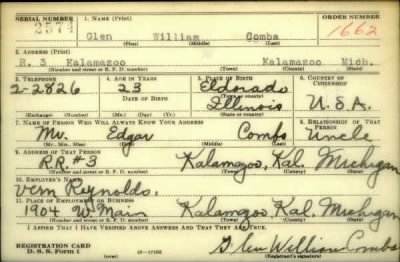 SERIAL NUMBER 1. NAME (Print) ORDER NUMBER
2571 Glen William Combs 1662
(First) (Middle) (Last)
2. ADDRESS (Print)
R. 3 Kalamazoo Kalamazoo Mich.
(Number and street or R. F. D. number) (Town) (County) (State)
3. TELEPHONE 4. AGE IN YEARS 5. PLACE OF BIRTH 6. COUNTRY OF CITIZENSHIP
2-2826 23 Eldorado
DATE OF BIRTH (Town or county)
Illinois U.S.A.
(Exchange) (Number) (Mo.) (Day) (Yr.) (State or country)
7. NAME OF PERSON WHO WILL ALWAYS KNOW YOUR ADDRESS 8. RELATIONSHIP OF THAT PERSON
Mr. Edgar Combs Uncle
(Mr., Mrs., Miss) (First) (Middle) (Last)
9. ADDRESS OF THAT PERSON
R.R. #3 Kalamazoo, Kal. Michigan
(Number and street or R. F. D. number) (Town) (County) (State)
10. EMPLOYER'S NAME
Vern Reynolds.
11. PLACE OF EMPLOYMENT OR BUSINESS
1904 W. Main Kalamazoo, Kal. Michigan
(Number and street or R. F. D. number) (Town) (County) (State)
I AFFIRM THAT I HAVE VERIFIED ABOVE ANSWERS AND THAT THEY ARE TRUE.
REGISTRATION CARD
D. S. S. Form 1 Glen William Combs
(Registrant's signature)